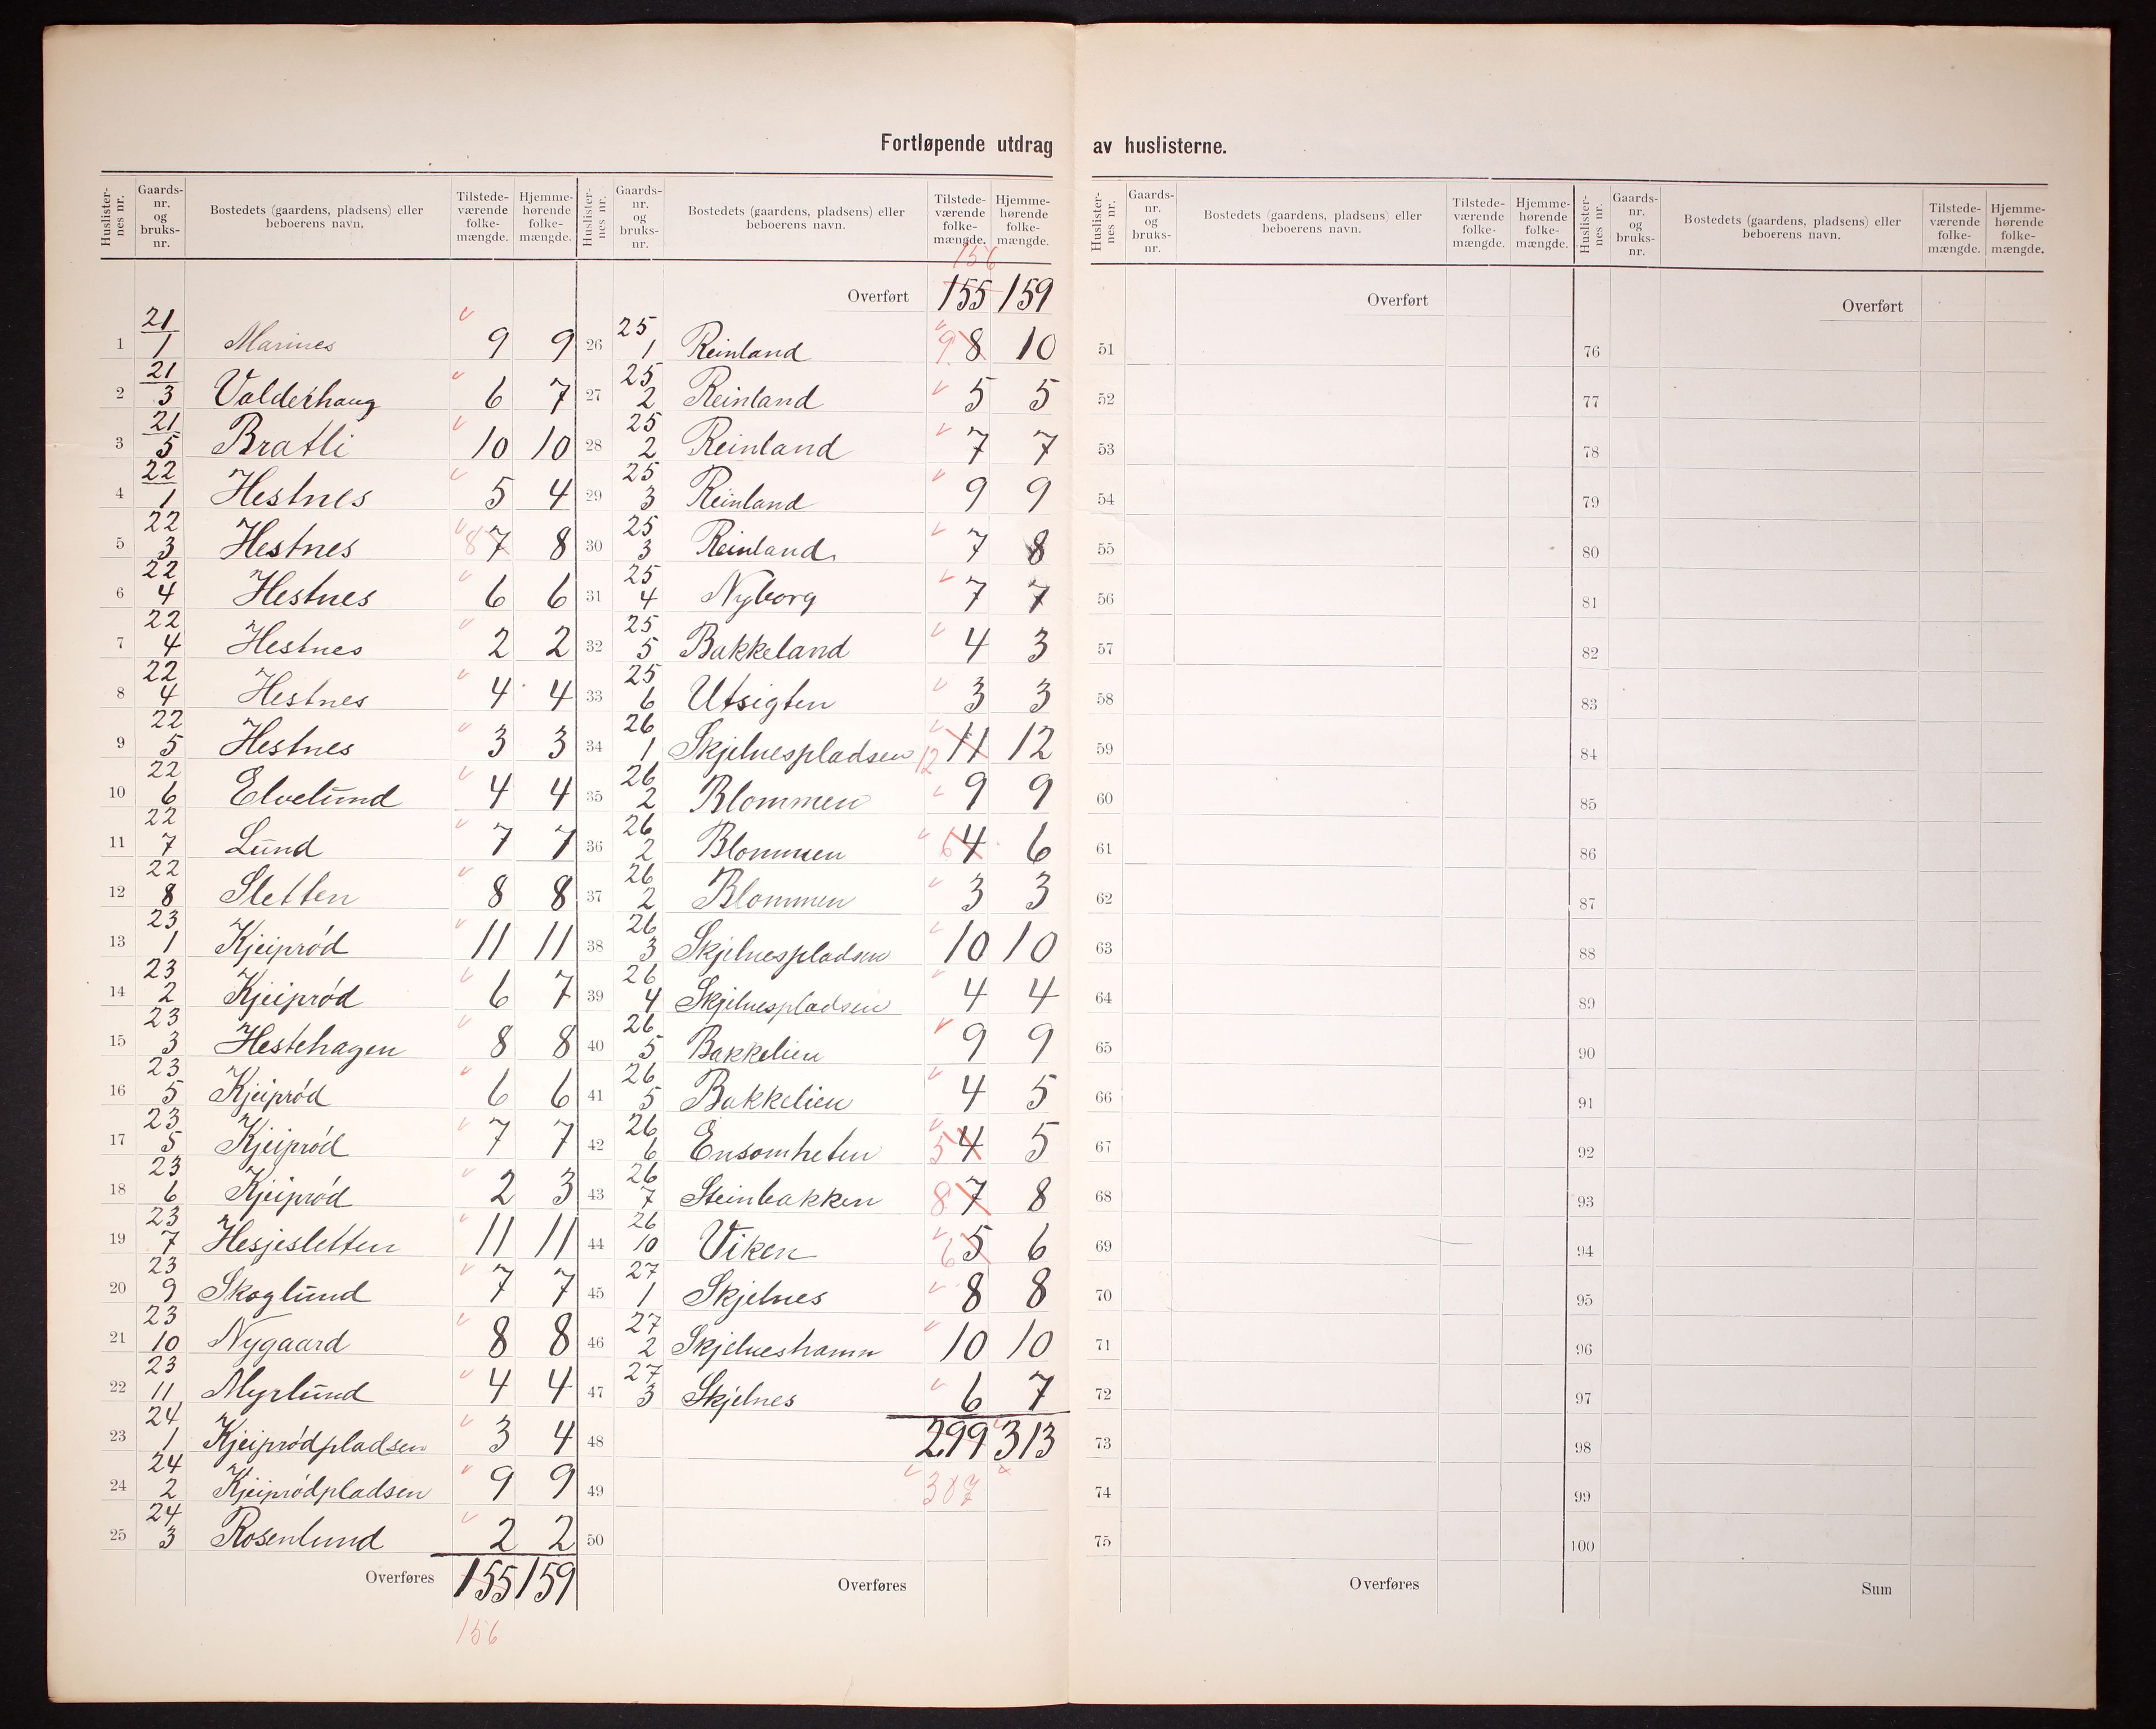 Fortløpende utdrag av huslisterne.
Huslister-nes nr. Gaards-nr. og bruks-nr. Bostedets (gaardens, pladsens) eller beboerens navn. Tilstede-værende folke-mængde. Hjemme-hørende folke-mængde.
1 21/1 Marines 9 9
2 21/3 Valderhaug 6 7
3 21/5 Bratli 10 10
4 22/1 Hestnes 5 4
5 22/3 Hestnes 8 7 8
6 22/4 Hestnes 6 6
7 22/4 Hestnes 2 2
8 22/4 Hestnes 4 4
9 22/5 Hestnes 3 3
10 22/6 Elvelund 4 4
11 22/7 Lund 7 7
12 22/8 Sletten 8 8
13 23/1 Kjeiprød 11 11
14 23/2 Kjeiprød 6 7
15 23/3 Hestehagen 8 8
16 23/5 Kjeiprød 6 6
17 23/5 Kjeiprød 7 7
18 23/6 Kjeiprød 2 3
19 23/7 Hesjesletten 11 11
20 23/9 Skoglund 7 7
21 23/10 Nygaard 8 8
22 23/11 Myrlund 4 4
23 24/1 Kjeiprødpladsen 3 4
24 24/2 Kjeiprødpladsen 9 9
25 24/3 Rosenlund 2 2
Overføres 155 159
156
Huslister-nes nr. Gaards-nr. og bruks-nr. Bostedets (gaardens, pladsens) eller beboerens navn. Tilstede-værende folke-mængde. Hjemme-hørende folke-mængde.
156
Overført 155 159
26 25/1 Reinland 9 8 10
27 25/2 Reinland 5 5
28 25/2 Reinland 7 7
29 25/3 Reinland 9 9
30 25/3 Reinland 7 8
31 25/4 Nyborg 7 7
32 25/5 Bakkeland 4 3
33 25/6 Utsigten 3 3
34 26/1 Skjelnespladsen 12 11 12
35 26/2 Blommen 9 9
36 26/2 Blommen 6 4 6
37 26/2 Blommen 3 3
38 26/3 Skjelnespladsen 10 10
39 26/4 Skjelnespladsen 4 4
40 26/5 Bakkelien 9 9
41 26/5 Bakkelien 4 5
42 26/6 Ensomheten 5 4 5
43 26/7 Steinbakken 8 7 8
44 26/10 Viken 6 5 6
45 27/1 Skjelnes 8 8
46 27/2 Skjelneshamn 10 10
47 27/3 Skjelnes 6 7
48 299 313
49 307
50
Overføres
Huslister-nes nr. Gaards-nr. og bruks-nr. Bostedets (gaardens, pladsens) eller beboerens navn. Tilstede-værende folke-mængde. Hjemme-hørende folke-mængde.
Overført
51
52
53
54
55
56
57
58
59
60
61
62
63
64
65
66
67
68
69
70
71
72
73
74
75
Overføres
Huslister-nes nr. Gaards-nr. og bruks-nr. Bostedets (gaardens, pladsens) eller beboerens navn. Tilstede-værende folke-mængde. Hjemme-hørende folke-mængde.
Overført
76
77
78
79
80
81
82
83
84
85
86
87
88
89
90
91
92
93
94
95
96
97
98
99
100
Sum